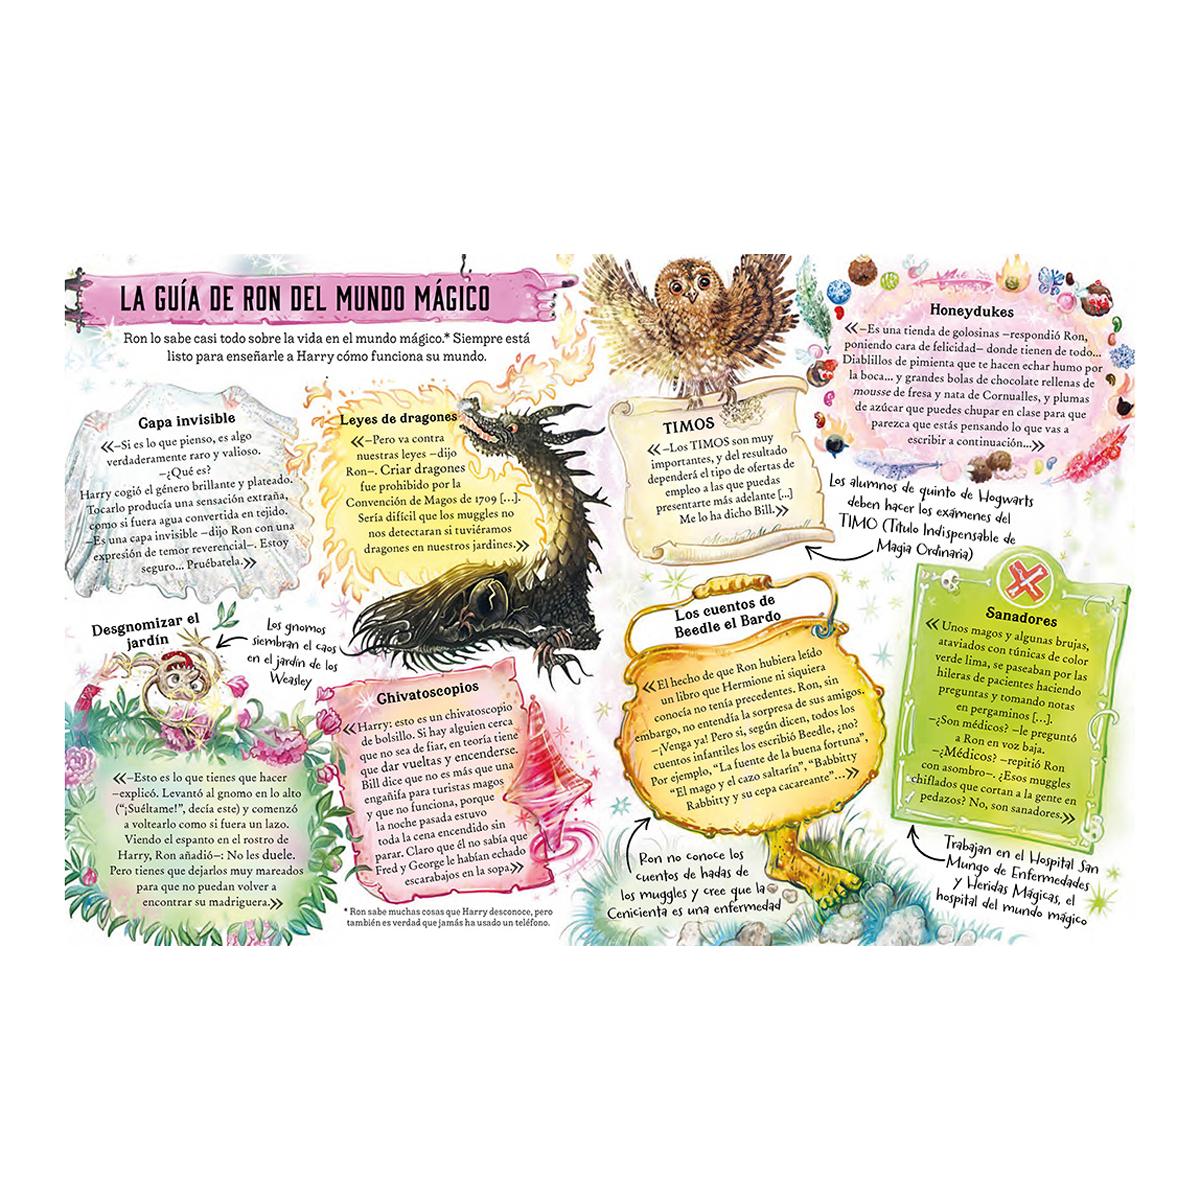 LA GUÍA DE RON DEL MUNDO MÁGICO
Ron lo sabe casi todo sobre la vida en el mundo mágico.* Siempre está
listo para enseñarle a Harry cómo funciona su mundo.
Gapa invisible
«–Si es lo que pienso, es algo
verdaderamente raro y valioso.
–¿Qué es?
Harry cogió el género brillante y plateado.
Tocarlo producía una sensación extraña,
como si fuera agua convertida en tejido.
–Es una capa invisible –dijo Ron con una
expresión de temor reverencial–. Estoy
seguro... Pruébatela.»
Leyes de dragones
«–Pero va contra
nuestras leyes –dijo
Ron–. Criar dragones
fue prohibido por la
Convención de Magos de 1709 [...].
Sería difícil que los muggles no
nos detectaran si tuviéramos
dragones en nuestros jardines.»
Desgnomizar el
jardín
Los gnomos
siembran el caos
en el jardín de los
Weasley
«–Esto es lo que tienes que hacer
–explicó. Levantó al gnomo en lo alto
(“¡Suéltame!”, decía este) y comenzó
a voltearlo como si fuera un lazo.
Viendo el espanto en el rostro de
Harry, Ron añadió–: No les duele.
Pero tienes que dejarlos muy mareados
para que no puedan volver a
encontrar su madriguera.»
Ghivatoscopios
«Harry: esto es un chivatoscopio
de bolsillo. Si hay alguien cerca
que no sea de fiar, en teoría tiene
que dar vueltas y encenderse.
Bill dice que no es más que una
engañifa para turistas magos
y que no funciona, porque
la noche pasada estuvo
toda la cena encendido sin
parar. Claro que él no sabía que
Fred y George le habían echado
escarabajos en la sopa.»
* Ron sabe muchas cosas que Harry desconoce, pero
también es verdad que jamás ha usado un teléfono.
TIMOS
«–Los TIMOS son muy
importantes, y del resultado
dependerá el tipo de ofertas de
empleo a las que puedas
presentarte más adelante [...]
Me lo ha dicho Bill.»
Honeydukes
«–Es una tienda de golosinas –respondió Ron,
poniendo cara de felicidad– donde tienen de todo...
Diablillos de pimienta que te hacen echar humo por
la boca... y grandes bolas de chocolate rellenas de
mousse de fresa y nata de Cornualles, y plumas
de azúcar que puedes chupar en clase para que
parezca que estás pensando lo que vas a
escribir a continuación...»
Los alumnos de quinto de Hogwarts
deben hacer los exámenes del
TIMO (Título Indispensable de
Magia Ordinaria)
Los cuentos de
Beedle el Bardo
«El hecho de que Ron hubiera leído
un libro que Hermione ni siquiera
conocía no tenía precedentes. Ron, sin
embargo, no entendía la sorpresa de sus amigos.
–¡Venga ya! Pero si, según dicen, todos los
cuentos infantiles los escribió Beedle, ¿no?
Por ejemplo, “La fuente de la buena fortuna”,
“El mago y el cazo saltarín”, “Babbity
Rabbitty y su cepa cacareante”...»
Ron no conoce los
cuentos de hadas de
los muggles y cree que la
Cenicienta es una enfermedad
Sanadores
«Unos magos y algunas brujas,
ataviados con túnicas de color
verde lima, se paseaban por las
hileras de pacientes haciendo
preguntas y tomando notas
en pergaminos [...].
–¿Son médicos? –le preguntó
a Ron en voz baja.
–¿Médicos? –repitió Ron
con asombro–. ¿Esos muggles
chiflados que cortan a la gente en
pedazos? No, son sanadores.»
Trabajan en el Hospital San
Mungo de Enfermedades
y Heridas Mágicas, el
hospital del mundo mágico